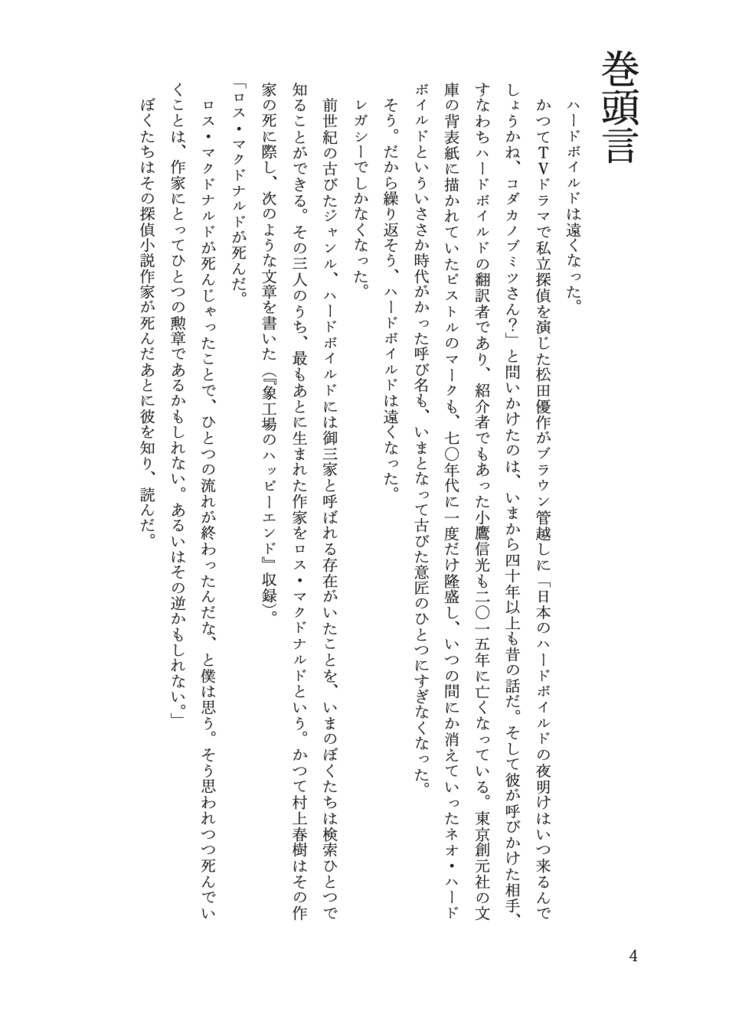 巻頭言
ハードボイルドは遠くなった。
かつてTVドラマで私立探偵を演じた松田優作がブラウン管越しに「日本のハードボイルドの夜明けはいつ来るんで
しょうかね、コダカノブミツさん？」と問いかけたのは、いまから四十年以上も昔の話だ。そして彼が呼びかけた相手、
すなわちハードボイルドの翻訳者であり、紹介者でもあった小鷹信光も二〇一五年に亡くなっている。東京創元社の文
庫の背表紙に描かれていたピストルのマークも、七〇年代に一度だけ隆盛し、いつの間にか消えていったネオ・ハード
ボイルドといういささか時代がかった呼び名も、いまとなって古びた意匠のひとつにすぎなくなった。
そう。だから繰り返そう、ハードボイルドは遠くなった。
レガシーでしかなくなった。
前世紀の古びたジャンル、ハードボイルドには御三家と呼ばれる存在がいたことを、いまのぼくたちは検索ひとつで
知ることができる。その三人のうち、最もあとに生まれた作家をロス・マクドナルドという。かつて村上春樹はその作
家の死に際し、次のような文章を書いた（『象工場のハッピーエンド』収録）。
「ロス・マクドナルドが死んだ。
ロス・マクドナルドが死んじゃったことで、ひとつの流れが終わったんだな、と僕は思う。そう思われつつ死んでい
くことは、作家にとってひとつの勲章であるかもしれない。あるいはその逆かもしれない。」
ぼくたちはその探偵小説作家が死んだあとに彼を知り、読んだ。
4